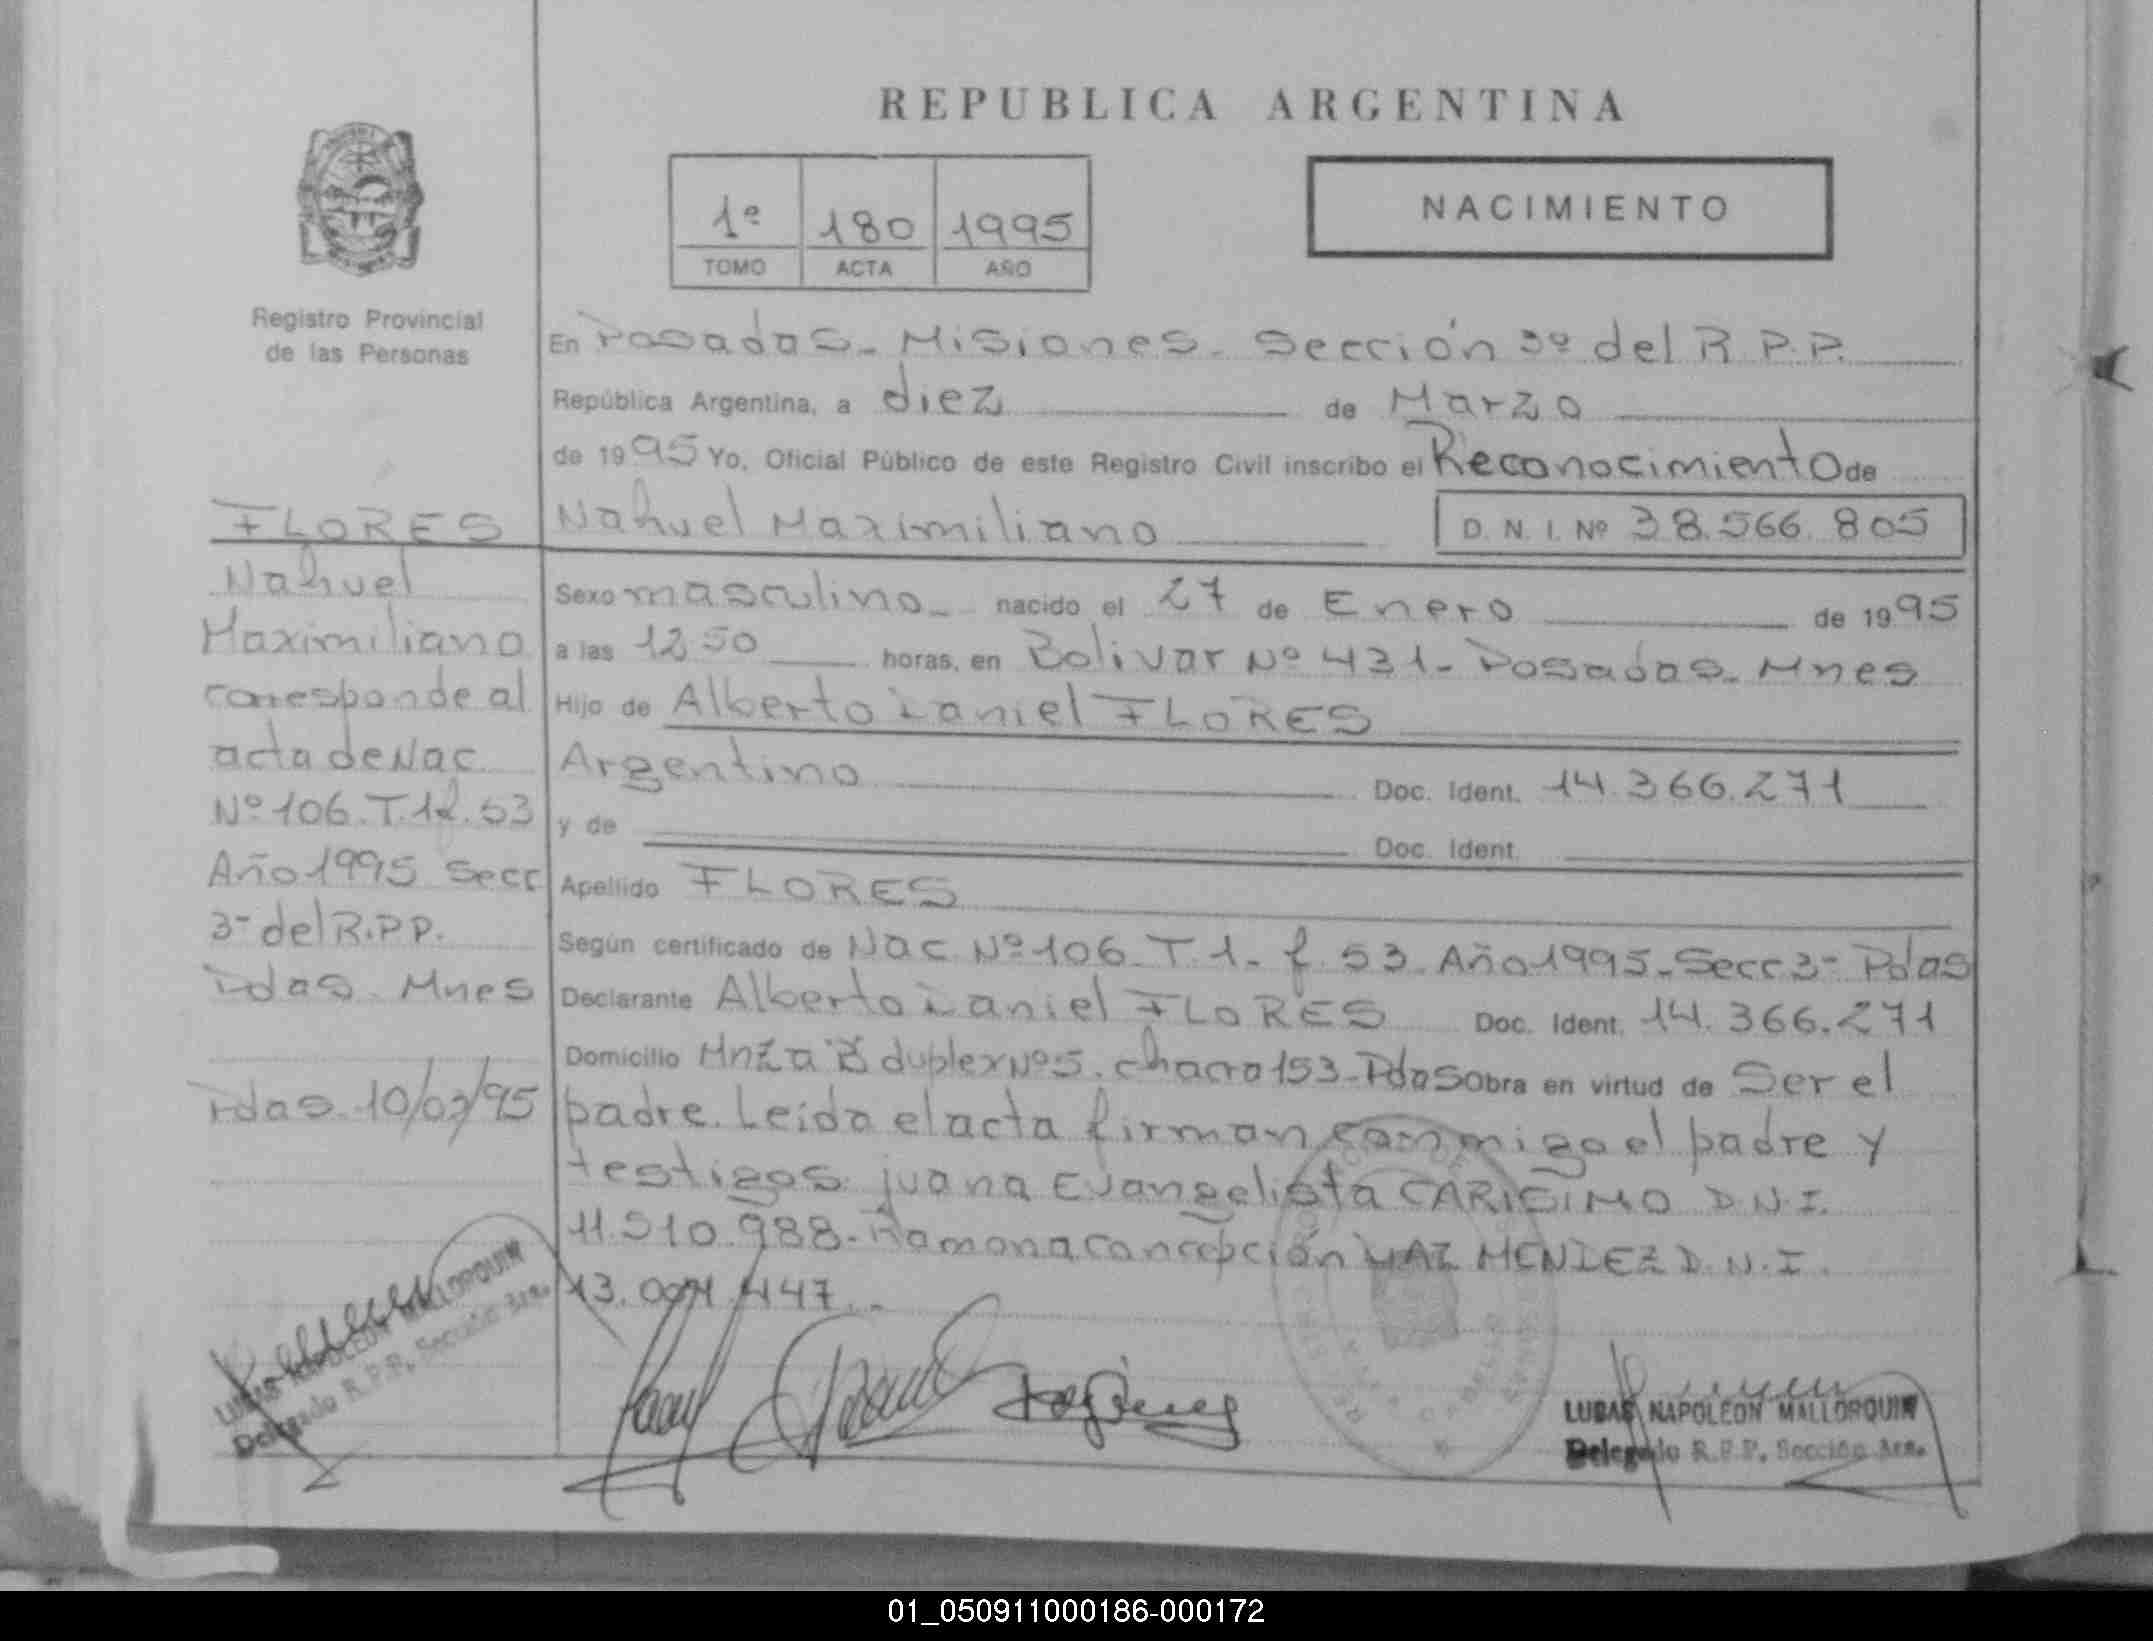 REPUBLICA ARGENTINA
1º 180 1995
TOMO ACTA AÑO
NACIMIENTO
Registro Provincial
de las Personas
En Posadas - Misiones - Sección 3º del R.P.P.
República Argentina, a diez de Marzo
de 1995 Yo, Oficial Público de este Registro Civil inscribo el Reconocimiento de
Nahuel Maximiliano D. N. I. Nº 38.566.805
Sexo masculino - nacido el 27 de Enero de 1995
a las 12 50 horas, en Bolivar Nº 431 - Posadas - Mnes
Hijo de Alberto Daniel FLORES
Argentino Doc. Ident. 14.366.271
y de Doc. Ident.
Apellido FLORES
Según certificado de Nac. Nº 106 - T. 1 - f. 53 Año 1995 - Secc 3- Pdas
Declarante Alberto Daniel FLORES Doc. Ident. 14.366.271
Domicilio Mnza B duplex Nº 5. chacra 153 - Pdas Obra en virtud de Ser el
padre. Leida el acta firman conmigo el padre y
testigos juana Evangelista CARISIMO D.N.I.
11.510.988 - Ramona Concepción MENDEZ D.N.I.
13. 447.-
FLORES
Nahuel
Maximiliano
corresponde al
acta de Nac.
Nº 106. T. 1 f. 53
Año 1995 Secc
3- del R.P.P.
Pdas. Mnes
Pdas. 10/03/95
LUCAS NAPOLEON MALLORQUIN
Delegado R.P.P. Sección 3ra.
LUCAS NAPOLEON MALLORQUIN
Delegado R.P.P. Sección 3ra.
01_050911000186-000172